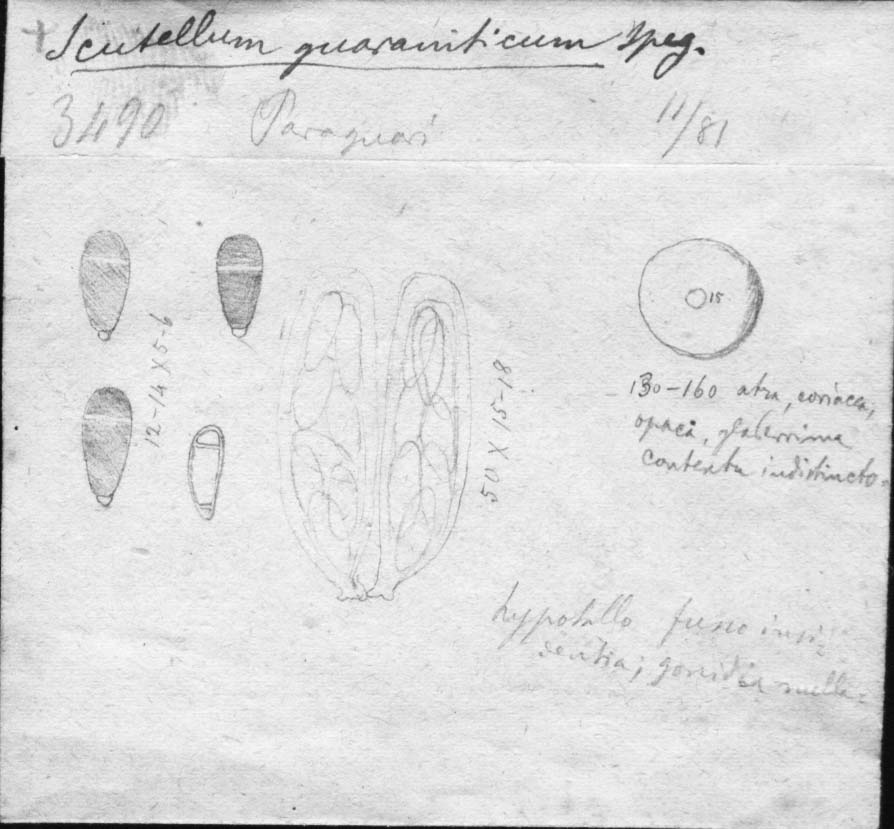 + Scutellum guaraniticum Speg.
3490 Paraguari 11/81
12-14 X 5-6
50 X 15-18
15
130-160 atra, coriacea,
opaca, glaberrima
contextu indistincto.
hypotallo fusco insi=
dentia; gonidia nulla=